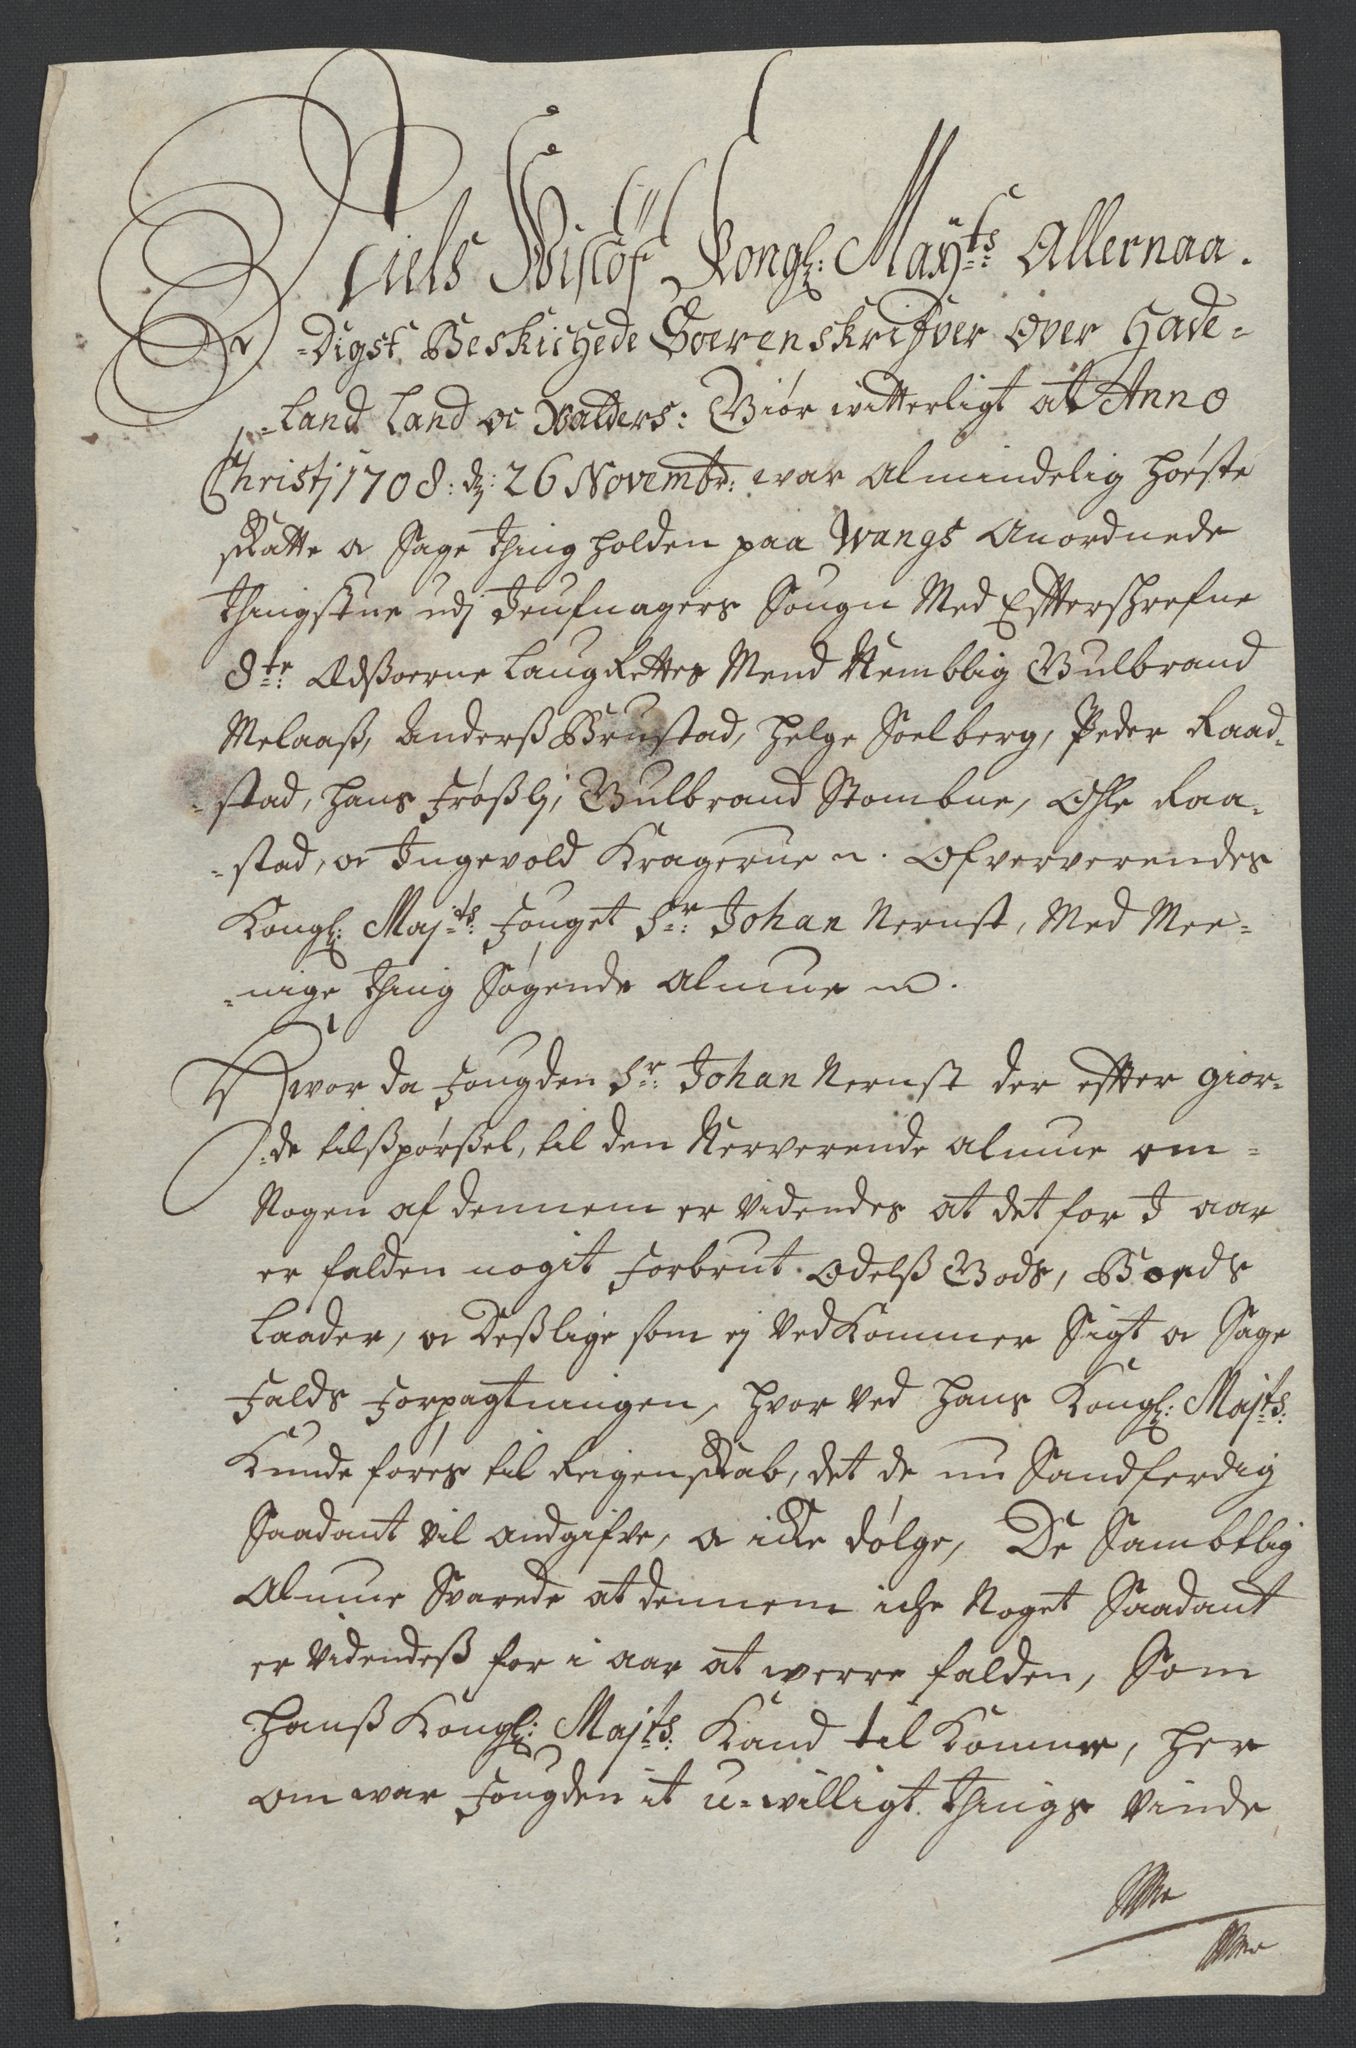 Niels Wislöf Kongl: Maÿts: Allernaa-
-digst Beskichede Soerenskrifver over Hade-
-land Land oc Walders: Giør witterligt at Anno
Christj 1708: dz: 26 Novembr: war Almindelig høste
skatte oc Sage thing holden paa Wangs Anordnede
thingstue udj Jeufnagers Sougn Med Efterschrefne
8te: Edsvorne LaugRettes Mend Nemblig Gulbrand
Melaaß, Anderß Brustad, helge Soelberg, Peder Raad-
-stad, hans Frøßlj, Gulbrand Stombue, Ohle Raa-
-stad, oc Ingevold Kragerue. Ofververendes
Kongl: Majts: Fouget Sr: Johan Nernst, Med Mee-
-nige thing Søgende Almue.
Hvor da Fougden Sr: Johan Nernst der efter gior-
-de tilßpørßel, til den Nerverende Almue om
Nogen af dennem er videndes at det for I aar
er falden nogit Forbrut Odelß Gods, Bords
Laader, oc Deßlige som ej VedKommer Sigt oc Sage
Falds Forpagtningen, hvor ved hans Kongl: Majts:
Kunde føres til Reigenskab, det de nu Sandferdig
Saadant vil andgifve, oc icke dølge, De Samblig
Almue Svarede at dennem iche Noget Saadant
er videndeß for i aar at werre falden, Som
hanß Kongl: Majts: Kand til Komme, her
om war Fougden it u-willigt things vinde